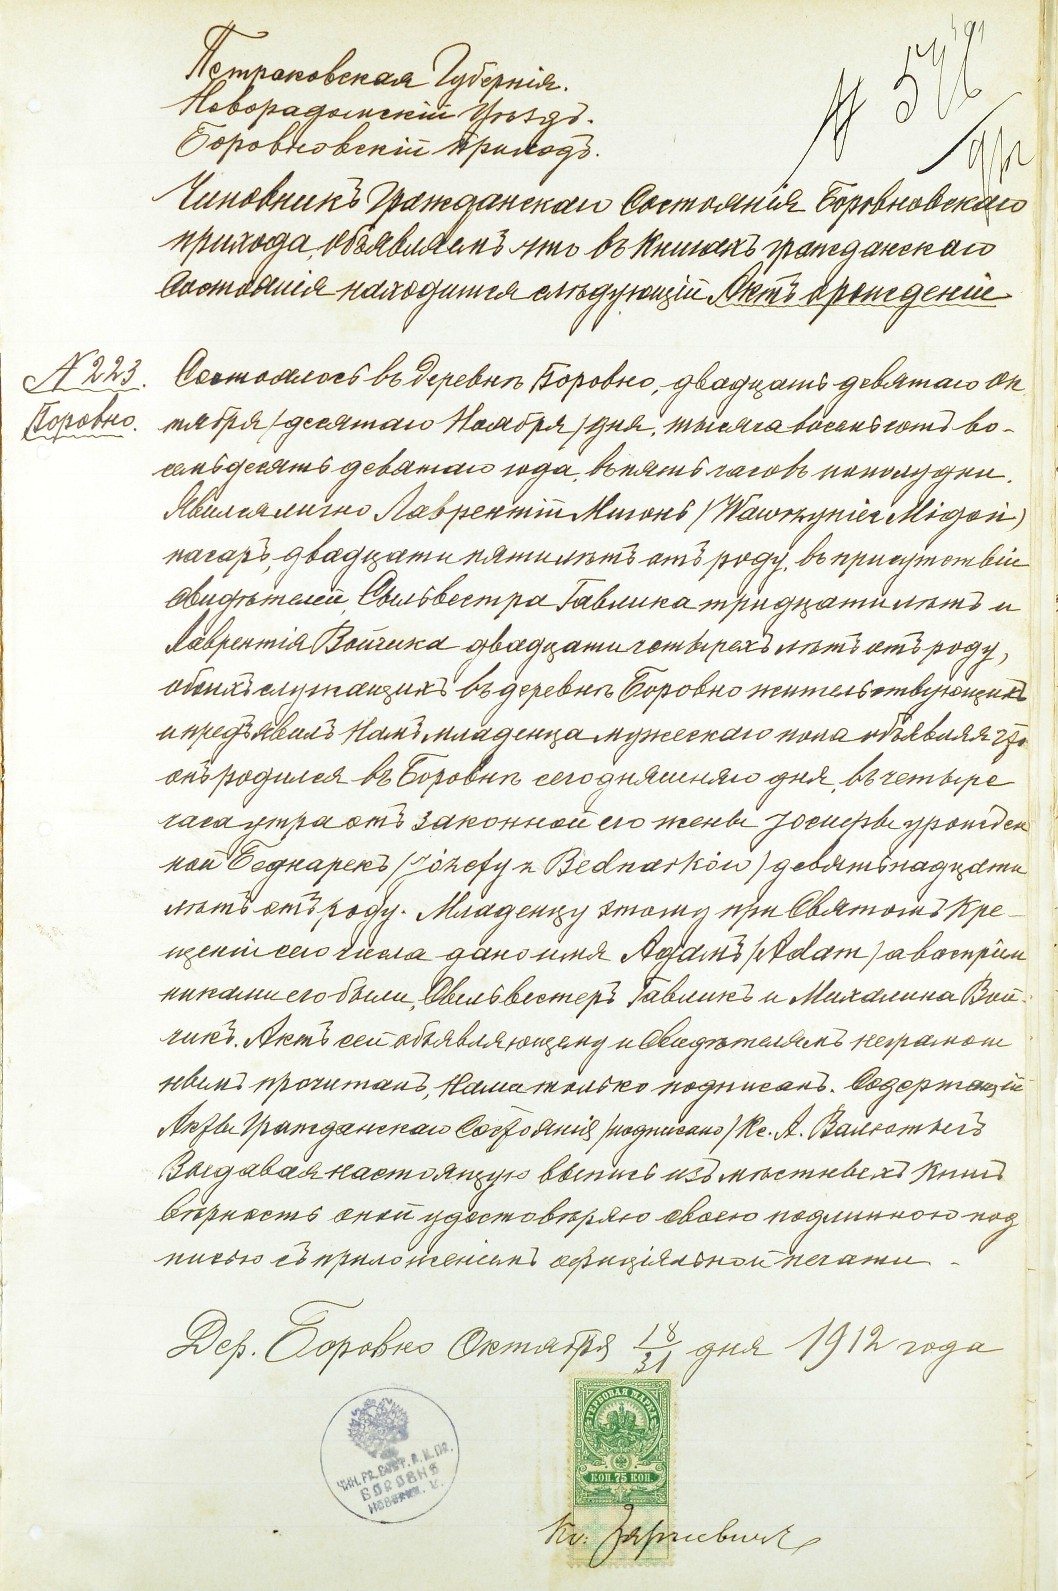 Петраковская Губернія.
Новорадомскій Уѣздъ.
Боровновскій приходъ.
Чиновникъ Гражданскаго Состоянія Боровновскаго
прихода, объявляетъ что въ книгахъ гражданскаго
Состоянія находится слѣдующій Актъ о рожденіи
№ 223.
Боровно.
Состоялось въ деревнѣ Боровно, двадцать девятаго Ок
тября /десятаго Ноября/ дня, тысяча восемьсотъ во-
семьдесятъ девятаго года, въ пять часовъ пополудни.
Явился лично Лаврентій Мигонь /Wawrzyniec Migoń/
пачаръ, двадцати пяти лѣтъ отъ роду, въ присутствіи
свидѣтелей, Сыльвестра Гавлика тридцати лѣтъ и
Лаврентія Войчика двадцати четырехъ лѣтъ отъ роду,
обоихъ служащихъ въ деревнѣ Боровно жительствующихъ
и предъявилъ Намъ младенца мужескаго пола объявляя что
онъ родился въ Боровнѣ сегодняшняго дня, въ четыре
часа утра отъ законной его жены Іосифы урожден
ной Беднарекъ /Józefy z Bednarków/ девятьнадцати
лѣтъ отъ роду. Младенцу этому при Святомъ Кре-
щеніи сего числа дано имя Адамъ /Adam/ а воспріем
никами его были, Сыльвестеръ Гавликъ и Михалина Вой-
чикъ. Актъ сей объявляющему и Свидѣтелямъ неграмот
нымъ прочитанъ, Нами только подписанъ. Содержащій
Акты Гражданскаго Состоянія /подписано/ Кс. А.
Выдавая настоящую выпись изъ мѣстныхъ книгъ
вѣрность оной удостовѣряю своею подлинною под
писью съ приложеніемъ офиціяльной печати.
Дер. Боровно Октября 18/31 дня 1912 года
ГЕРБОВАЯ МАРКА
КОП. 75 КОП.
БОРОВНО